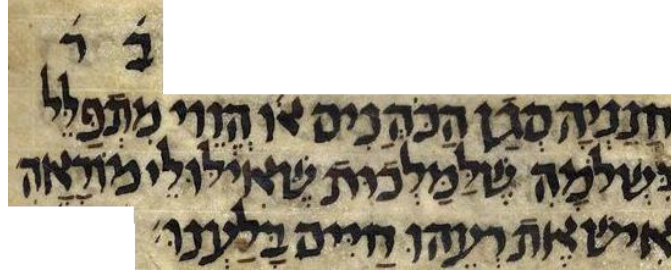 ב׳ ר׳
חנניה סגן הכהנים או׳ הווי מתפלל
בשלמה שלמלכות שאילולי מוראה
איש את רעהו חיים בלענו